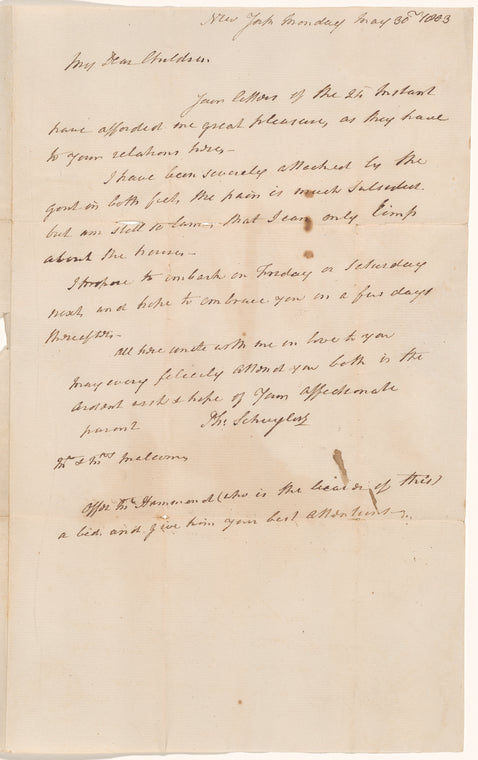 New York Monday May 30th 1803
My Dear Children.
Your letters of the 24 Instant
have afforded me great pleasure, as they have
to your relations here,-
I have been severely attacked by the
gout in both feet, the pain is much subsided.
but am still so lame, that I can only limp
about the house.-
I propose to embark on Friday or Saturday
next, and hope to embrace you in a few days
thereafter.-
All here unite with me in love to you
may every felicity attend you both is the
ardent wish & hope of Your affectionate
parent Ph: Schuyler
Mr & Mrs Malcom,
Offer Mr Hammond (who is the bearer of this)
a bed. and give him your best attentions-.